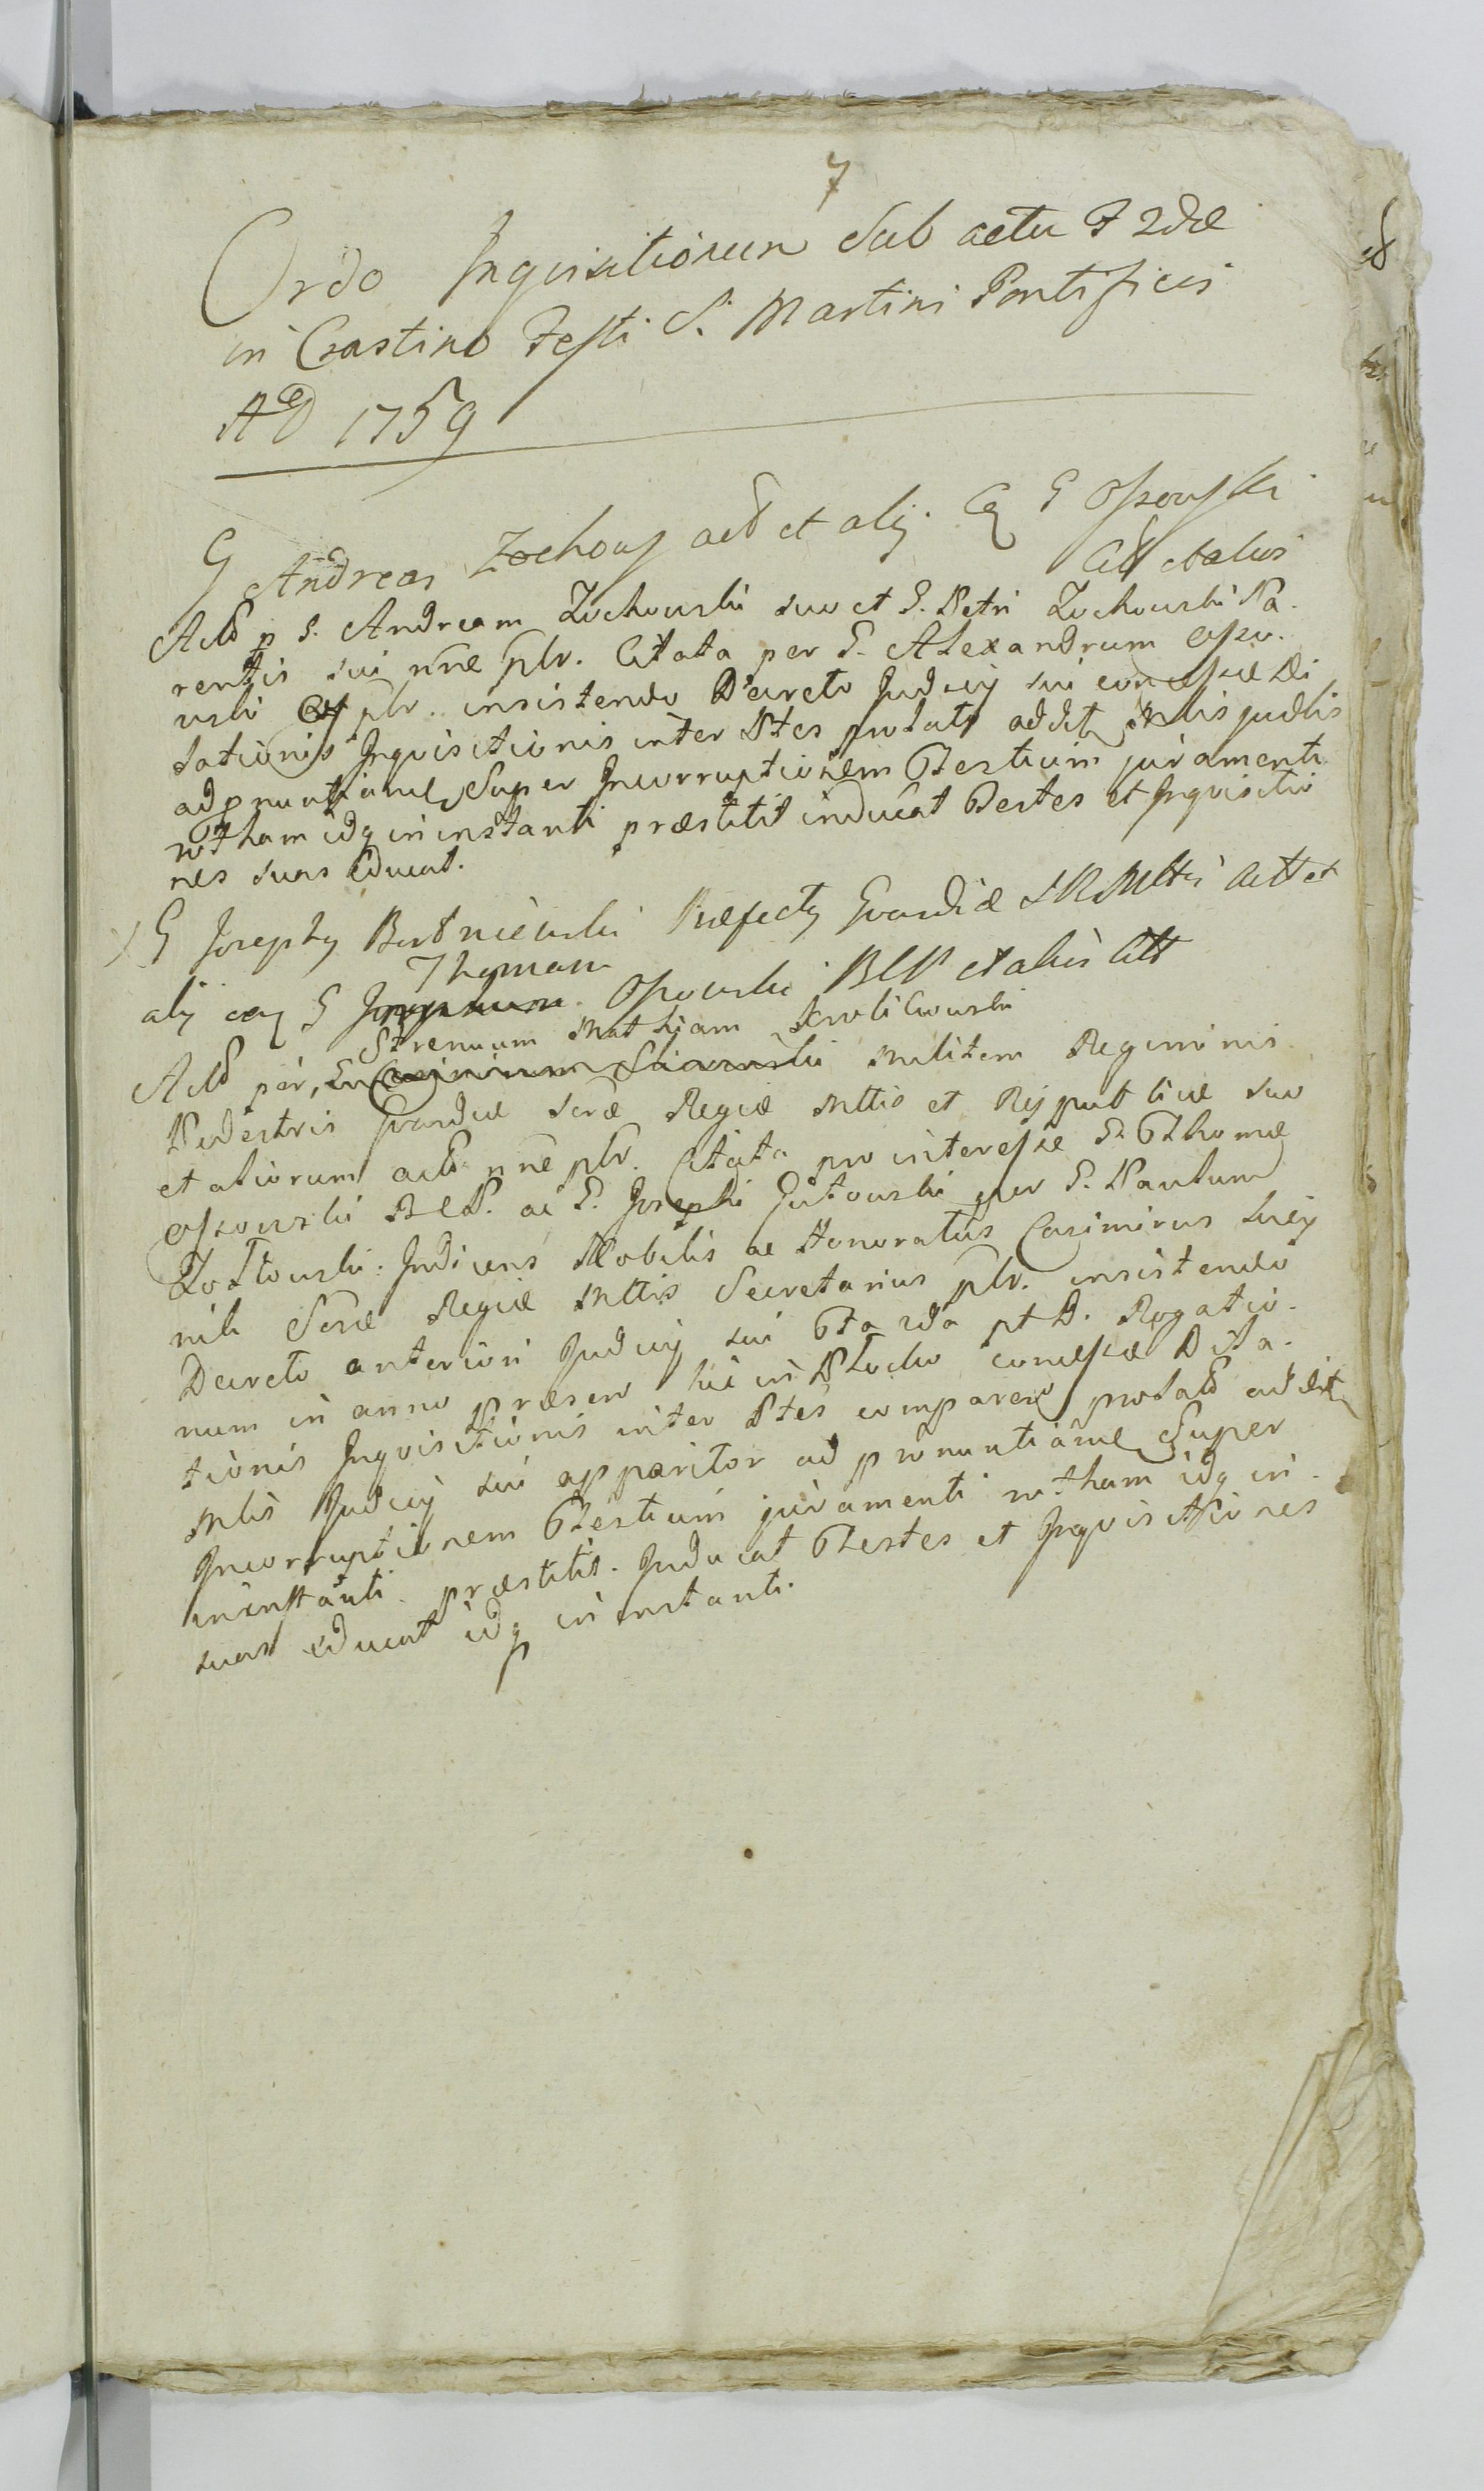 7
Ordo Inquisitionum Sub actu F 2dæ
in Crastino Festi S. Martini Pontificis
AD 1759
G Andreas Zochows actt et alij. Cq G Ossowski
Citt et alios
Actt p G. Andream Zochowski suo et G. Petri Zochowski Pa-
rentis sui nne plr. Citata per G. Alexandrum Osso-
wski plr. insistendo Decreto Judicij sui concessæ Di
lationis Inquisitionis inter Ptes prolato addit Mlis judlis
ad pnuntiand Super Incorruptionem Testium juramenti
rotham idq in instanti præstitit inducat Testes et Inquisitio
nes suas educat.
G Josephq Bartniewski Præfectq Gvardiæ SRMttis actt et
alij coq G Thomam Ossowski BCP et alios Citt
Actt per Strenuum Mathiam Krolikowski Militem Regiminis
Pedestris Gvardiæ Seræ Regiæ Mttis et Rejpublicæ suo
et aliorum actt nne plr. Citata pro interesse G. Thomæ
Ossowski BCP. ac G. Josephi Gutowski per G. Paulum
Zołtowski. Judicens Nobilis ac Honoratus Casimirus
Seræ Regiæ Mttis Secretarius plr. insistendo
Decreto anteriori Judicij sui Fta 2da pt D. Rogatio-
num in anno præsen hic in Plocko concessæ Dila-
tionis Inquisitionis inter Ptes comparen prolato addit
Mlis Judicij sui apparitor ad pronuntiand Super
Incorruptionem Testium juramenti rotham idq in-
instanti præstitit. Inducat Testes et Inquisitiones
suas educat idq in instanti.